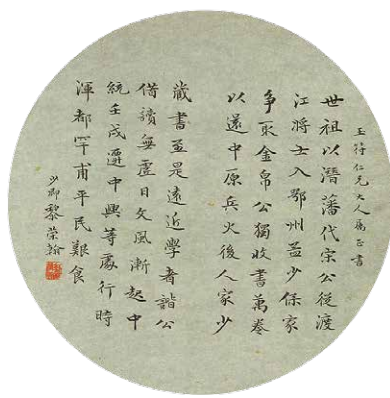 玉符仁兄大人屬正書
世祖以潛藩代宗公從渡
江將士入鄂州孟少保家
爭取金帛公獨收書萬卷
以還中原兵火後人家少
藏書至是遠近學者詣公
借讀無虛日文風漸起中
統壬戌遷中興等處行時
渾都罕甫平民艱食
少卿黎榮翰